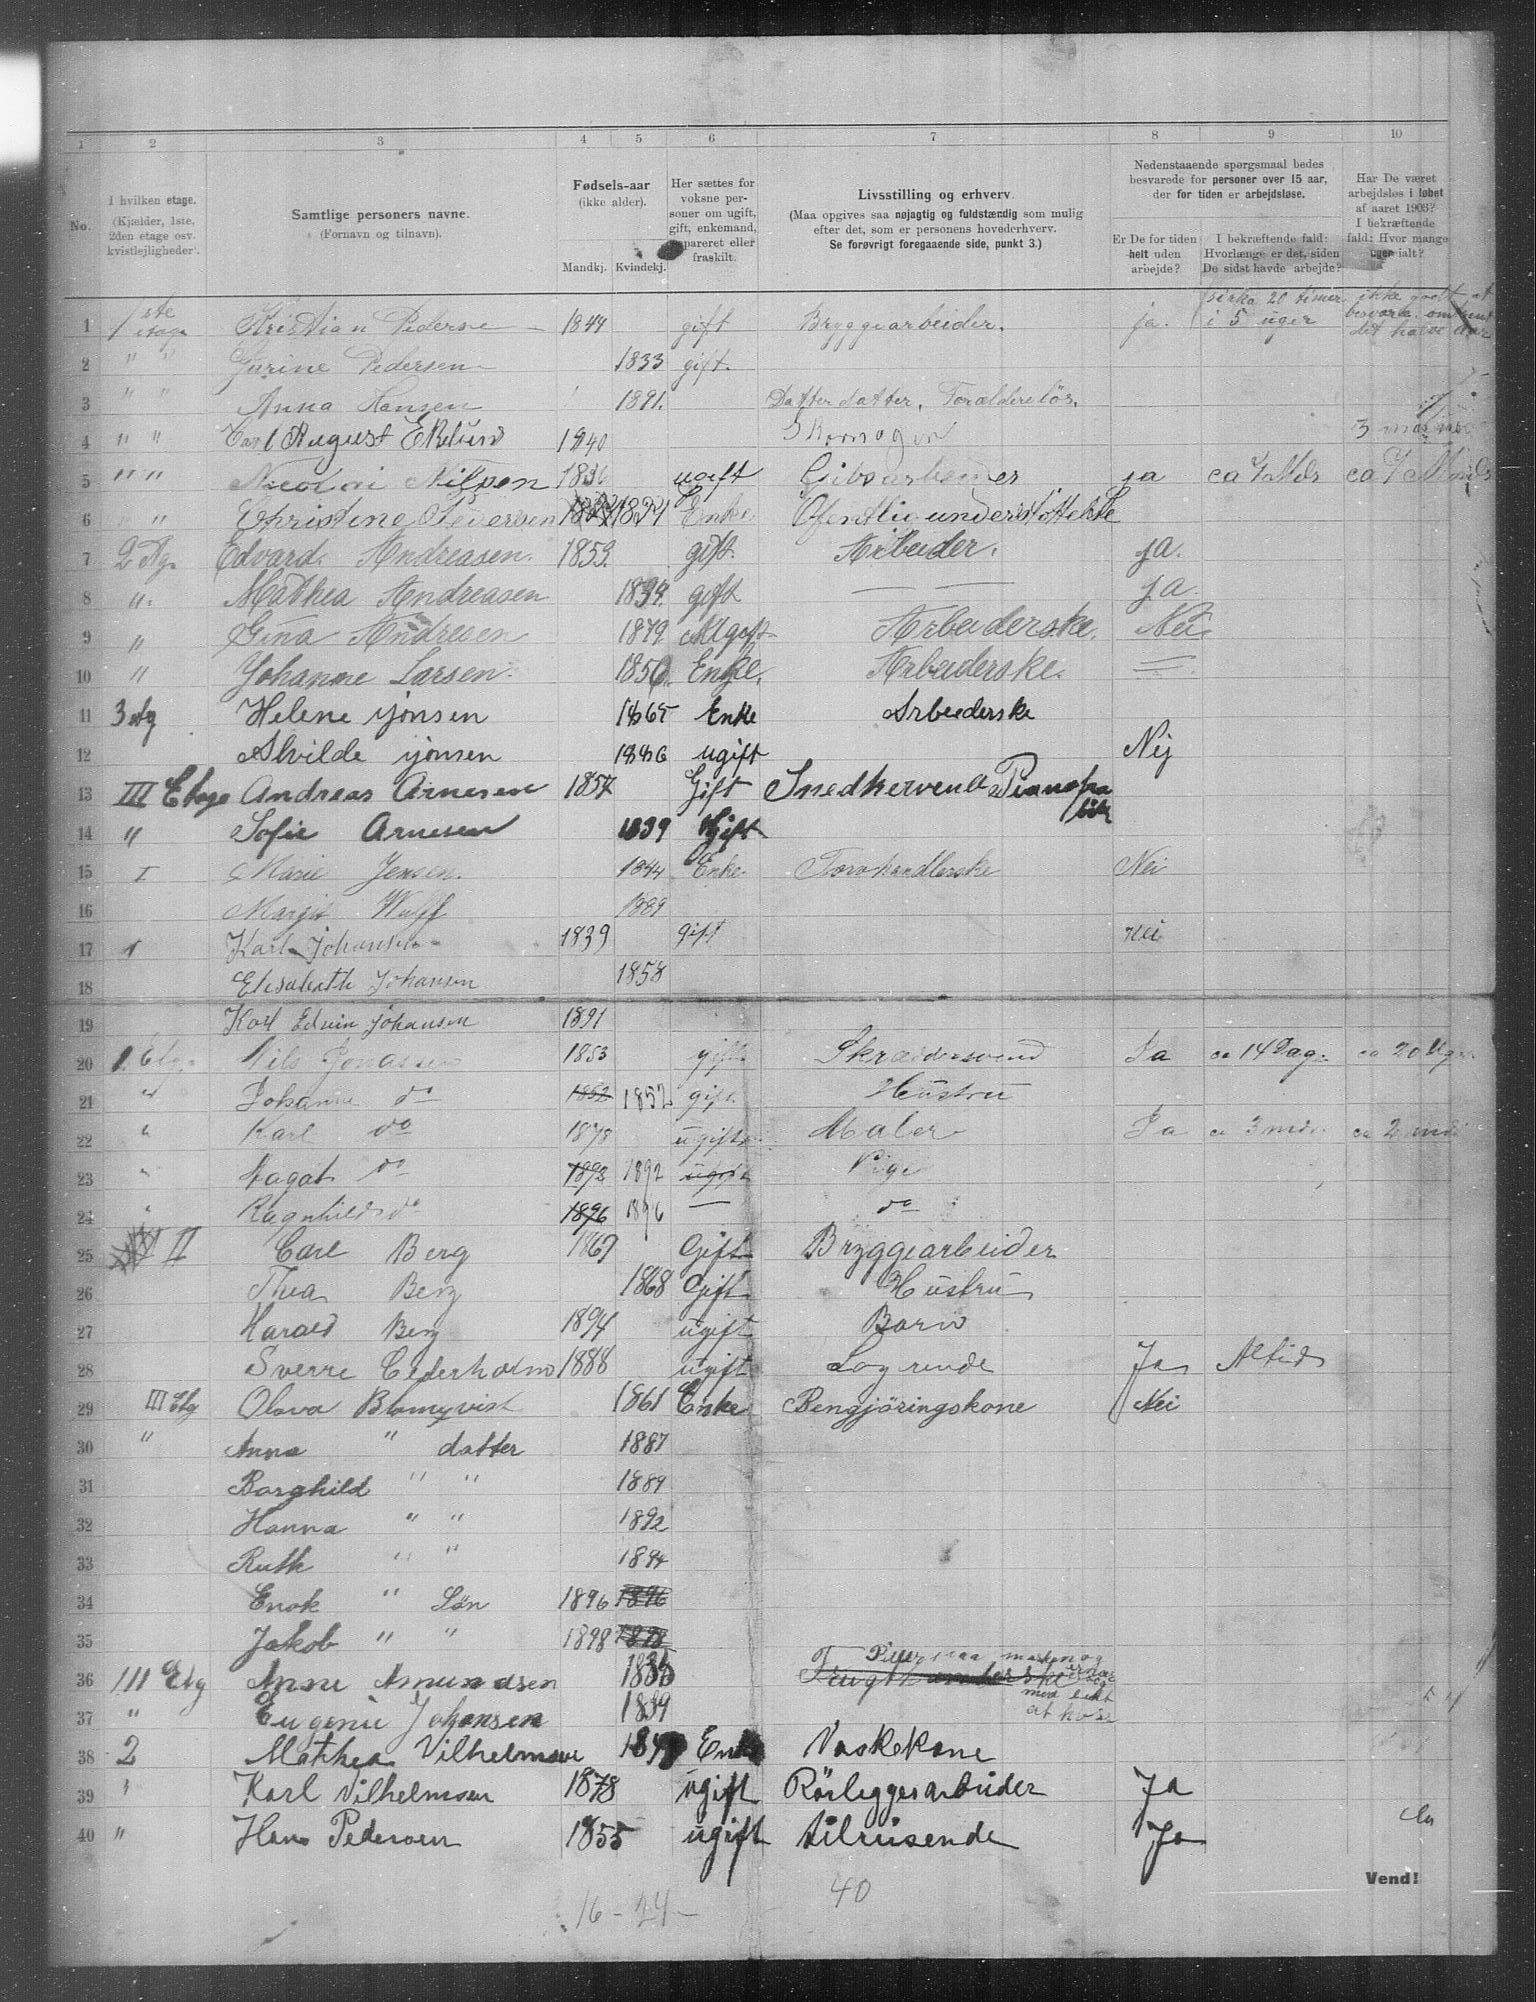 1 2 3 4 5 6 7 8 9 10
No.
I hvilken etage.
(Kjælder, 1ste,
2den etage osv.
kvistlejligheder).
Samtlige personers navne.
(Fornavn og tilnavn).
Fødsels-aar
(ikke alder).
Mandkj. Kvindekj.
Her sættes for
voksne per-
soner om ugift,
gift, enkemand,
separeret eller
fraskilt.
Livsstilling og erhverv.
(Maa opgives saa nøjagtig og fuldstændig som mulig
efter det, som er personens hovederhverv.
Se forøvrigt foregaaende side, punkt 3.)
Nedenstaaende spørgsmaal bedes
besvarede for personer over 15 aar,
der for tiden er arbejdsløse.
Er De for tiden
helt uden
arbejde?
I bekræftende fald:
Hvorlænge er det, siden
De sidst havde arbejde?
Har De været
arbejdsløs i løbet
af aaret 1903?
I bekræftende
fald: Hvor mange
uger ialt?
1 1ste etage Kristian Pederse 1844 gift Bryggearbeider. ja. cirka 20 timer i 5 uger ikke godt at det halve aar
2 " " Gurine Pedersen 1833 gift.
3 " " Anna Hansen 1891. Datter datter, Forældreløs.
4 " " Carl August Ekelund 1840 Skomager 3
5 " " Nicolai Nilsen 1836 ugift Gibsarbeider ja ca 7 Mdr ca 7
6 " Christine Pedersen 1821 Enke Ofentlig understöttelse
7 2 Etg. Edvard. Andreasen. 1859. gift. Arbeider. ja.
8 ". Mathea Andreasen 1839. gift — ja.
9 " Gina Andresen 1879 Ugift Arbeiderske. Nei
10 " Johanne Larsen. 1856. Enke. Arbeiderske.
11 3 etg Helene Jonsen 1865 Enke Arbeiderske
12 Alvilde Jonsen 1886 ugift Nej
13 III Etage Andreas Arnesen 1857 Gift Snedkersvend Pianofabrik
14 " Sofie Arnesen 1839 Gift
15 I Marie Jensen. 1844 Enke. Torvhandlerske Nei
16 Margit Wulff 1889
17 1 Karl Johansen 1839 gift Nei
18 Elisabeth Johansen 1858
19 Karl Edvin Johansen 1891
20 1. Etg. Nils Jonassen 1853 gift Skræddersvend Ja ca 14 Dag. ca 20 Uger
21 " Johanne do 1852 1852 gift Hustru
22 " Karl do 1878 ugift Maler Ja ca 3 mdr. ca 2 mdr
23 " Dagat do 1892 1892 ugift Pige
24 " Ragnhild do 1896 1896 — do
25 II Carl Berg 1867 Gift Bryggearbeider
26 Thea Berg 1868 Gift Hustru
27 Harald Berg 1894 ugift Barn
28 Sverre Cederholm 1888 ugift Logerende Ja Altid
29 III Etg Olava Blomqvist 1861 Enke Rengjöringskone Nei
30 " Anna " datter 1887
31 Borghild " " 1889
32 Hanna " " 1892
33 Ruth " " 1894
34 Enok " Sön 1896 1896
35 Jakob " " 1898 1898
36 III Etg Anne Amundsen 1835
37 " Eugenie Johansen 1839
38 2 Mathea Vilhelmsen Enke Vaskekone
39 " Karl Vilhelmsen 1878 ugift Rörleggerarbeider Ja
40 " Hans Pedersen 1855 ugift tilreisende Ja
Vend!
16 - 24 - 40